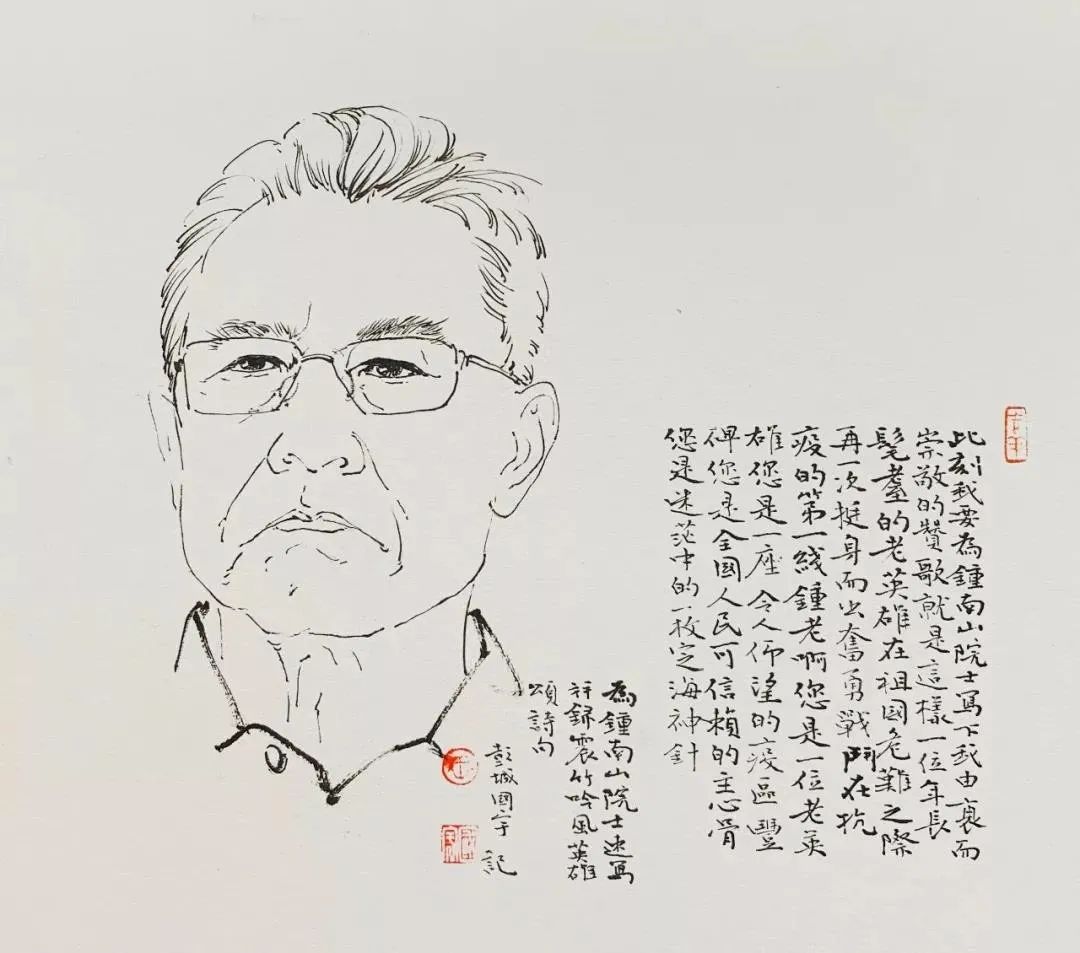 此刻我要為鍾南山院士寫下我由衷而
崇敬的贊歌就是這樣一位年長
髦耋的老英雄在祖國危難之際
再一次挺身而出奮勇戰鬥在抗
疫的第一綫鍾老啊您是一位老英
雄您是一座令人仰望的疫區豐
碑您是全國人民可信賴的主心骨
您是迷茫中的一枚定海神針
為鍾南山院士速寫
許錦震竹吟風英雄
頌詩句
彭城國宇記